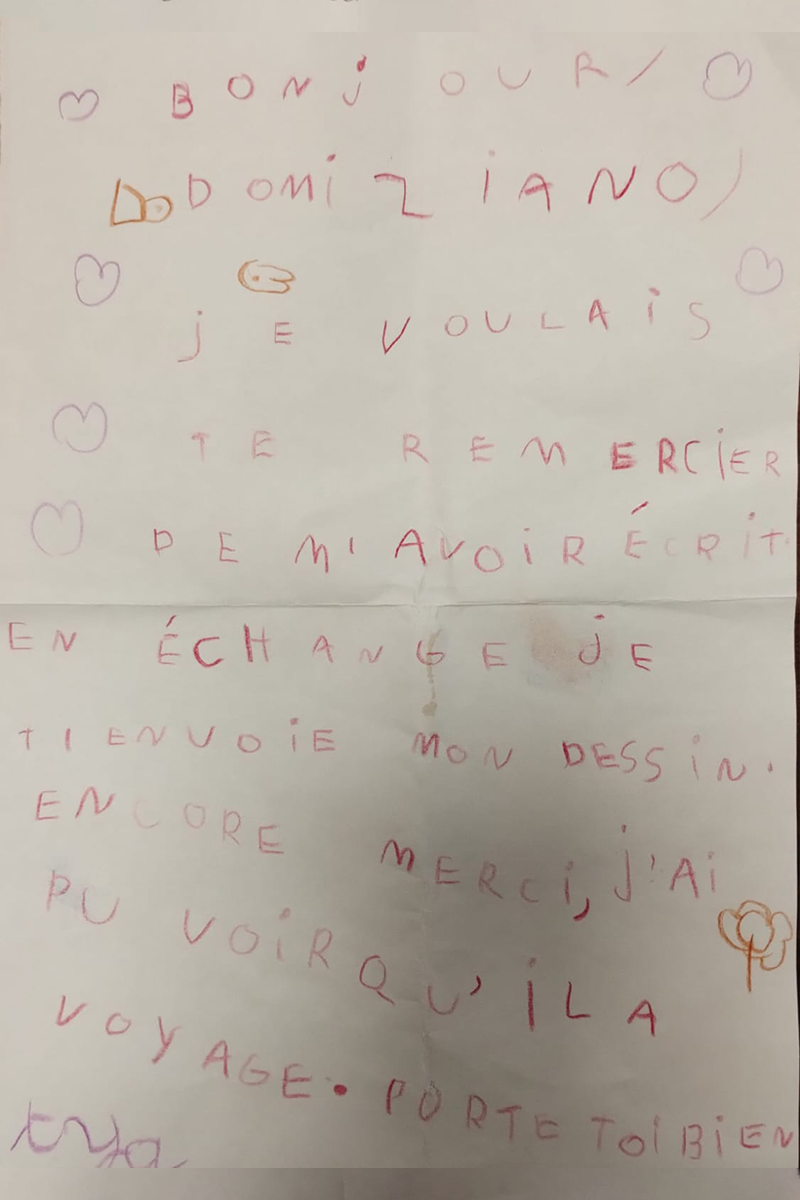 BONjOUR/
DOMiZiANO)
jE VOULAiS
TE REMERCiER
DE M'AVOiR ÉCRiT.
EN ÉCHANGE jE
T'ENVOiE MON DESSiN.
ENCORE MERCi, j'Ai
PU VOiR QU'iL A
VOYAGE. PORTE TOi BiEN
tya